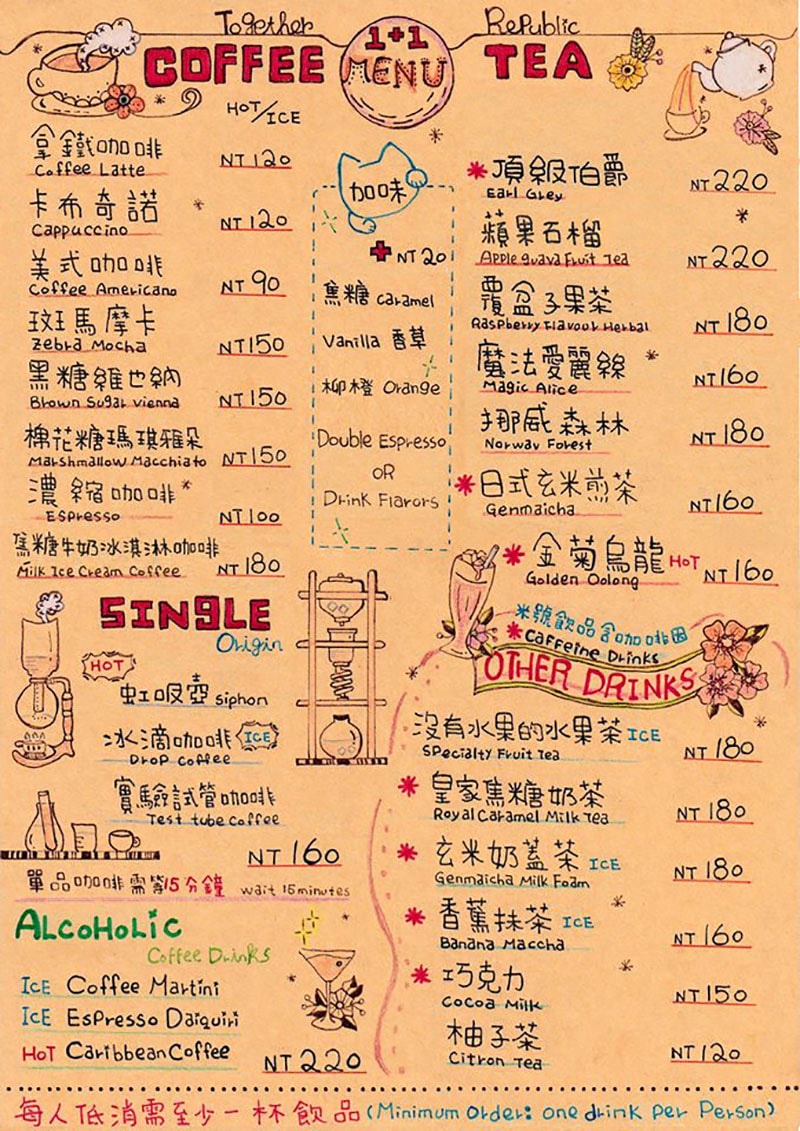 Together Republic
COFFEE
1+1
MENU
TEA
HOT/ICE
拿鐵咖啡
Coffee Latte NT 120
卡布奇諾
Cappuccino NT 120
美式咖啡
Coffee Americano NT 90
斑馬摩卡
Zebra Mocha NT 150
黑糖維也納
Brown Sugar Vienna NT 150
棉花糖瑪琪雅朵
Marshmallow Macchiato NT 150
濃縮咖啡*
Espresso NT 100
焦糖牛奶冰淇淋咖啡
Milk Ice Cream Coffee NT 180
加味
+ NT 20
焦糖 caramel
Vanilla 香草
柳橙 Orange
Double Espresso
OR
Drink Flavors
*頂級伯爵
Earl Grey NT 220
蘋果石榴
Apple guava Fruit Tea NT 220
覆盆子果茶
Raspberry Flavour Herbal NT 180
魔法愛麗絲
Magic Alice NT 160
挪威森林
Norway Forest NT 180
*日式玄米煎茶
Genmaicha NT 160
*金菊烏龍 HOT
Golden Oolong NT 160
SINGLE
Origin
HOT
虹吸壺 Siphon
冰滴咖啡 ICE
Drop Coffee
實驗試管咖啡
Test tube coffee
NT 160
單品咖啡需等15分鐘 wait 15 minutes
ALCOHOLIC
Coffee Drinks
ICE Coffee Martini
ICE Espresso Daiquiri
HOT Caribbean Coffee
NT 220
米號飲品含咖啡因
*Caffeine Drinks
OTHER DRINKS
沒有水果的水果茶 ICE
Specialty Fruit Tea NT 180
*皇家焦糖奶茶
Royal Caramel Milk Tea NT 180
*玄米奶蓋茶 ICE
Genmaicha Milk Foam NT 180
*香蕉抹茶 ICE
Banana Maccha NT 160
*巧克力
Cocoa Milk NT 150
柚子茶
Citron Tea NT 120
每人低消需至少一杯飲品 (Minimum Order: one drink per Person)